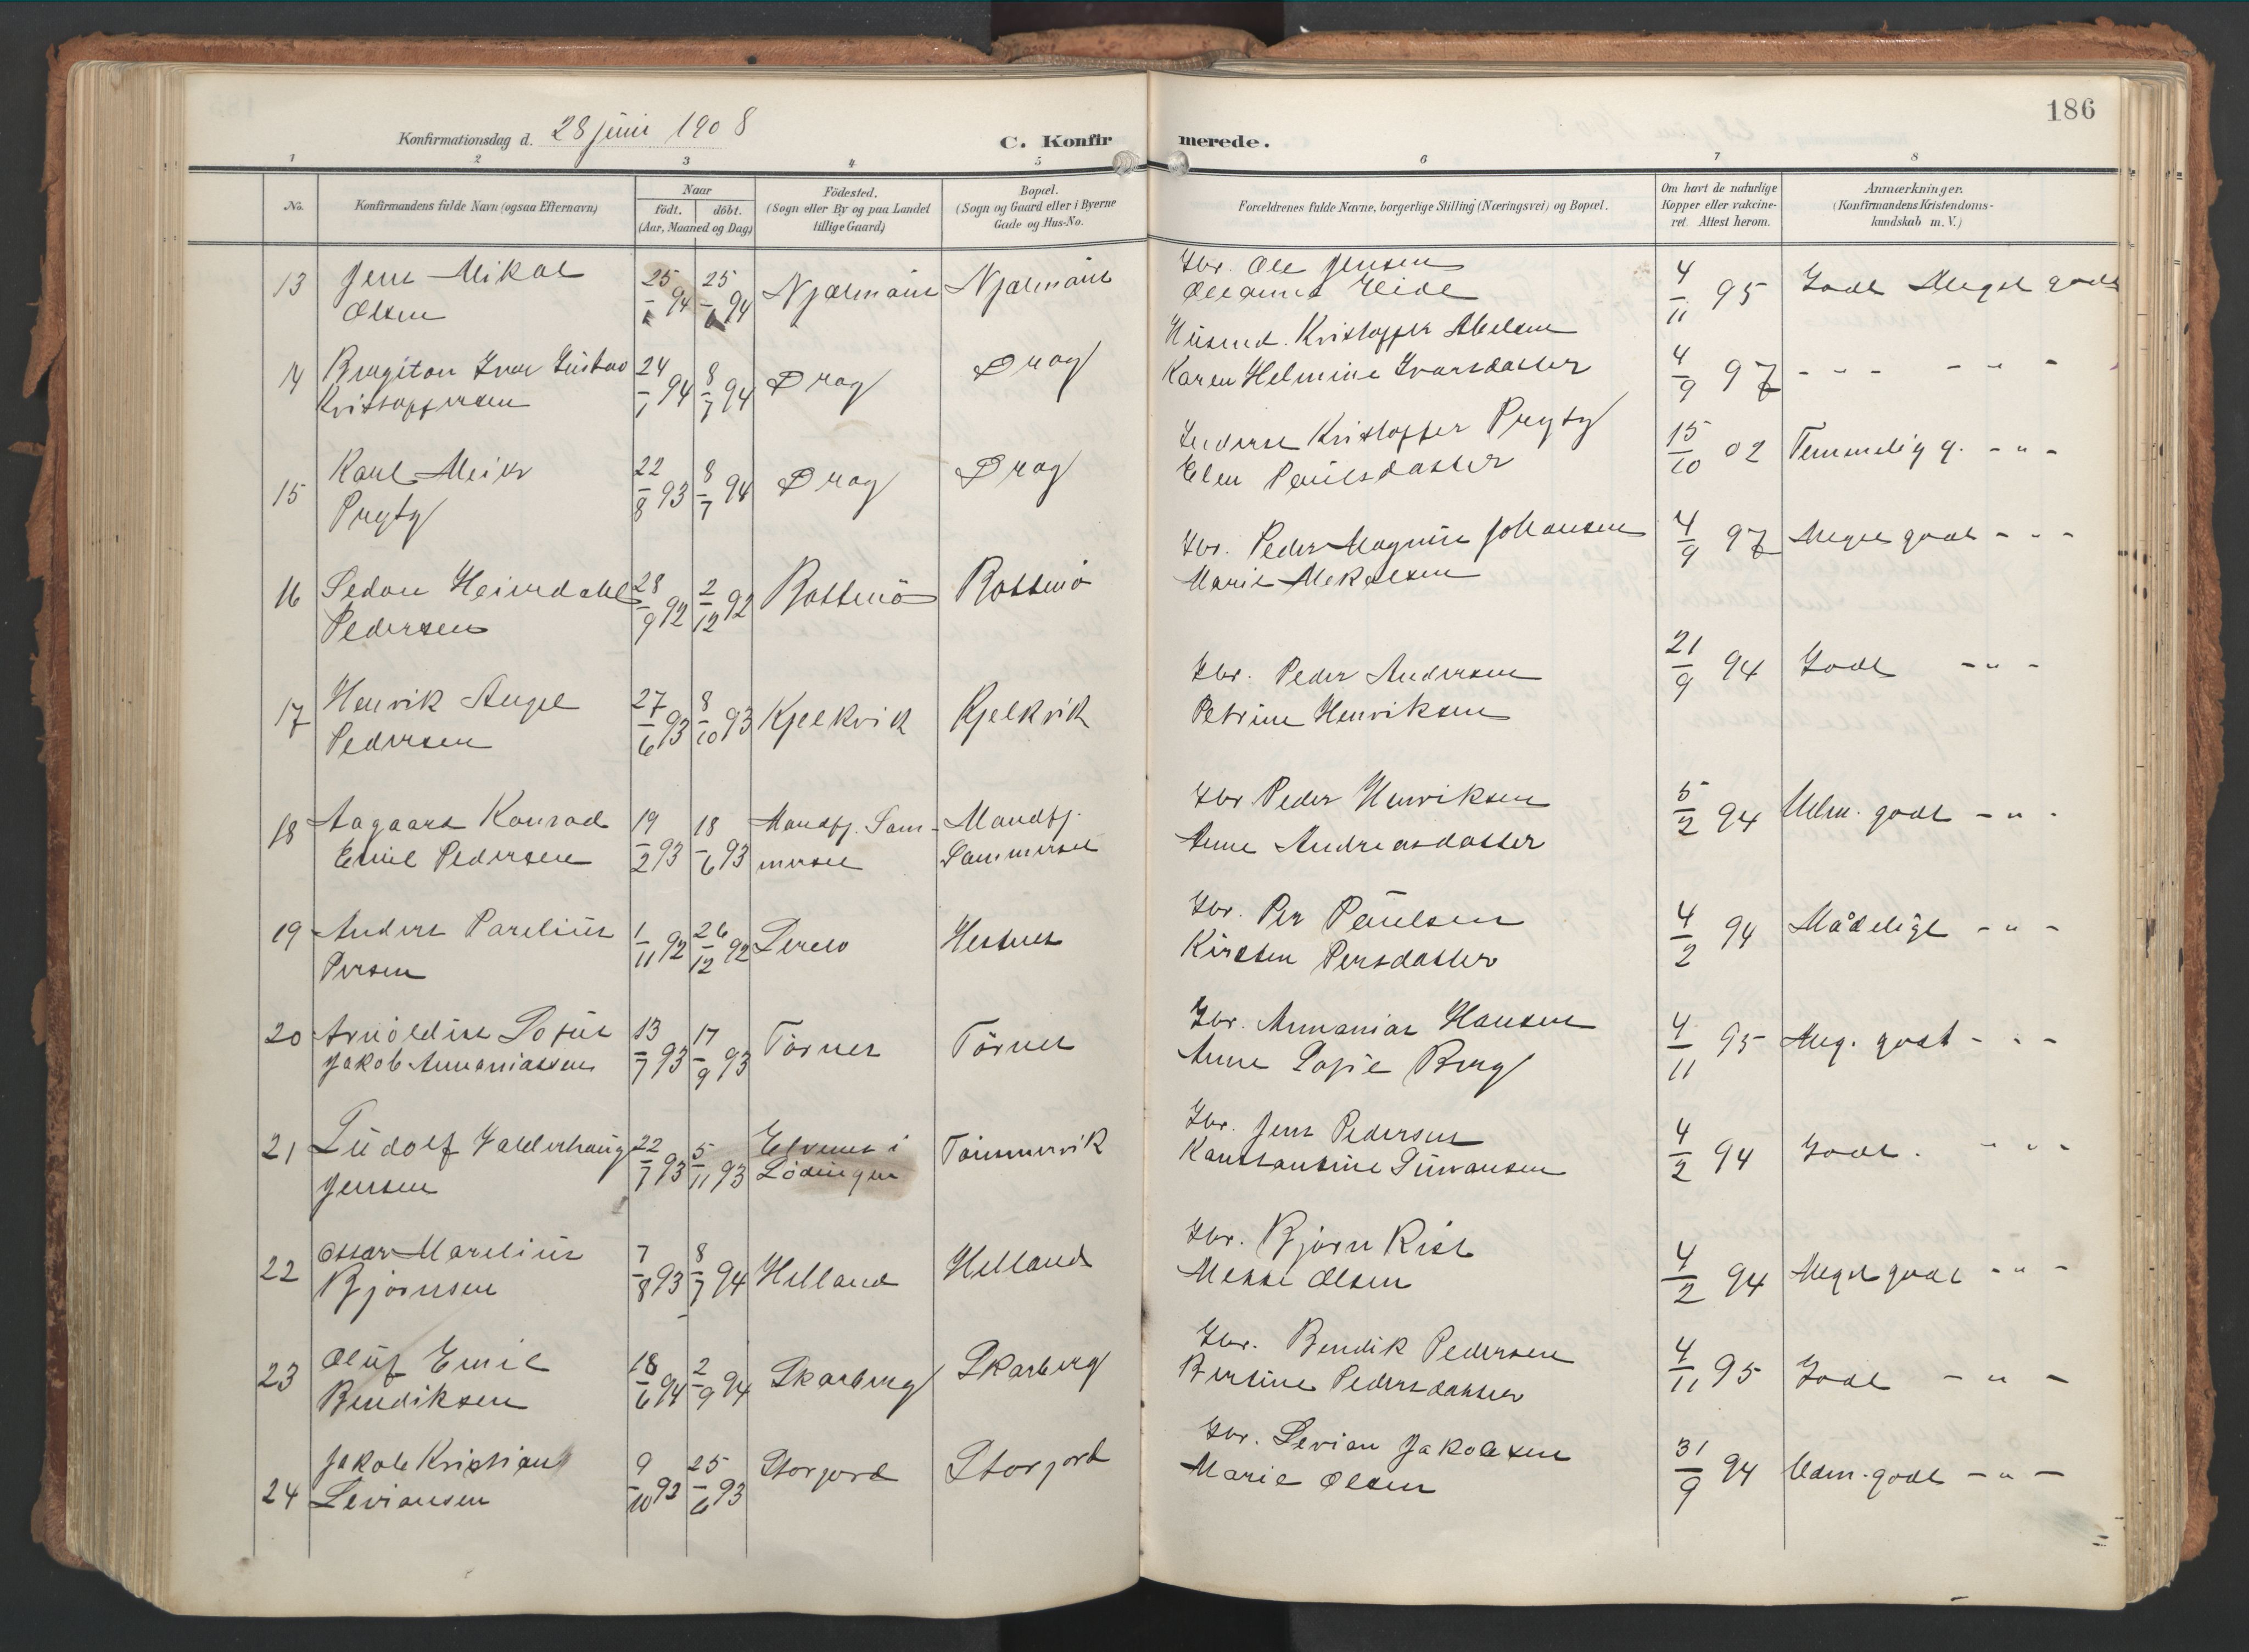 186
Konfirmationsdag d. 28 juni 1908
C. Konfirmerede.
1 2 3 4 5 6 7 8
No.
Konfirmandens fulde Navn (ogsaa Efternavn)
Naar
födt. döbt.
(Aar, Maaned og Dag)
Födested.
(Sogn eller By og paa Landet
tillige Gaard)
Bopæl.
(Sogn og Gaard eller i Byerne
Gade og Hus-No.
Forældrenes fulde Navne, borgerlige Stilling (Næringsvei) og Bopæl.
Om havt de naturlige
Kopper eller vakcine-
ret. Attest herom.
Anmærkninger.
(Konfirmandens Kristendoms-
kundskab m. V.)
13 Jens Mikal
Olsen
25/1 94 25/6 94
Gbr. Ole Jensen
4/11 95 Godt Meget godt
14
Kristoffersen
24/1 94 8/7 94 Drag Drag
Husmd. Kristoffer Abelsen
Karen Helmine Ivarsdatter
4/9 97 - - - - " -
15 Karl Meier
Prytz
22/8 93 8/7 94 Drag Drag
Kristoffer Prytz
Elen Paulsdatter
15/10 02 Temmelig g. - " -
16 Sedon Heimdahl
Pedersen
28/9 92 2/12 92 Rotsmo Rotsmo
Gbr. Peder Magnus Johansen
Marie Mekalsen
4/9 97 Meget godt - " -
17 Henrik Angel
Pedersen
27/6 93 8/10 93 Kjelkvik Kjelkvik
Gbr. Peder Andersen
Petrine Henriksen
21/9 94 Godt - " -
18 Aagaard Konrad
Emil Pedersen
19/2 93 18/6 93 Mandfj. Sam-
merset
Mandfj.
Sammerset
Gbr. Peder Henriksen
Anne Andreasdatter
5/2 94 Udm. godt - " -
19 Anders Parelius
Persen
1/11 92 26/12 92 Hestnes
Gbr. Per Paulsen
Kirsten Persdatter
4/2 94 Mådeligt - " -
20 Arnoldus Sofus
Jakob Annaniassen
13/7 93 17/9 93 Tårnes Tårnes
Gbr. Annanias Hansen
Anne Sofie Berg
4/11 95 Meg. godt - " -
21 Ludolf Valderhaug
Jensen
22/7 93 5/11 93 Elvenes i
Lødingen
Tømmervik
Gbr. Jens Pedersen
Konstantine Simonsen
4/2 94 Godt. - " -
22 Ossar Marelius
Bjørnsen
7/8 93 8/7 94 Helland Helland
Gbr. Bjørn Rist
Mekke Olsen
4/2 94 Meget godt - " -
23 Oluf Emil
Bendiksen
18/6 94 2/9 94 Skarberg Skarberg
Gbr. Bendik Pedersen
Bertine Pedersdatter
4/11 95 Godt - " -
24 Jakob Kristian
Leviansen
9/10 92 25/6 93 Storjord Storjord
Gbr. Levian Jakobsen
Marie Olsen
31/9 94 Udm. godt - " -